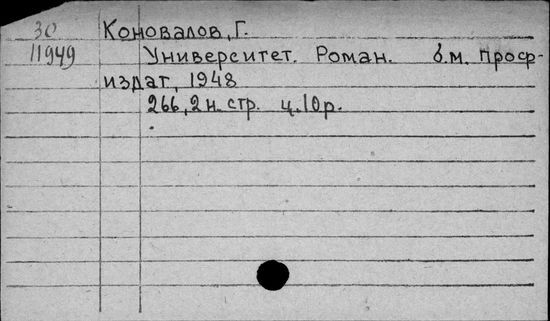 30 Коновалов, Г.
11949 Университет. Роман. б.м. проср-
издат, 1948
266, 2 н. стр. ц. 10 р.